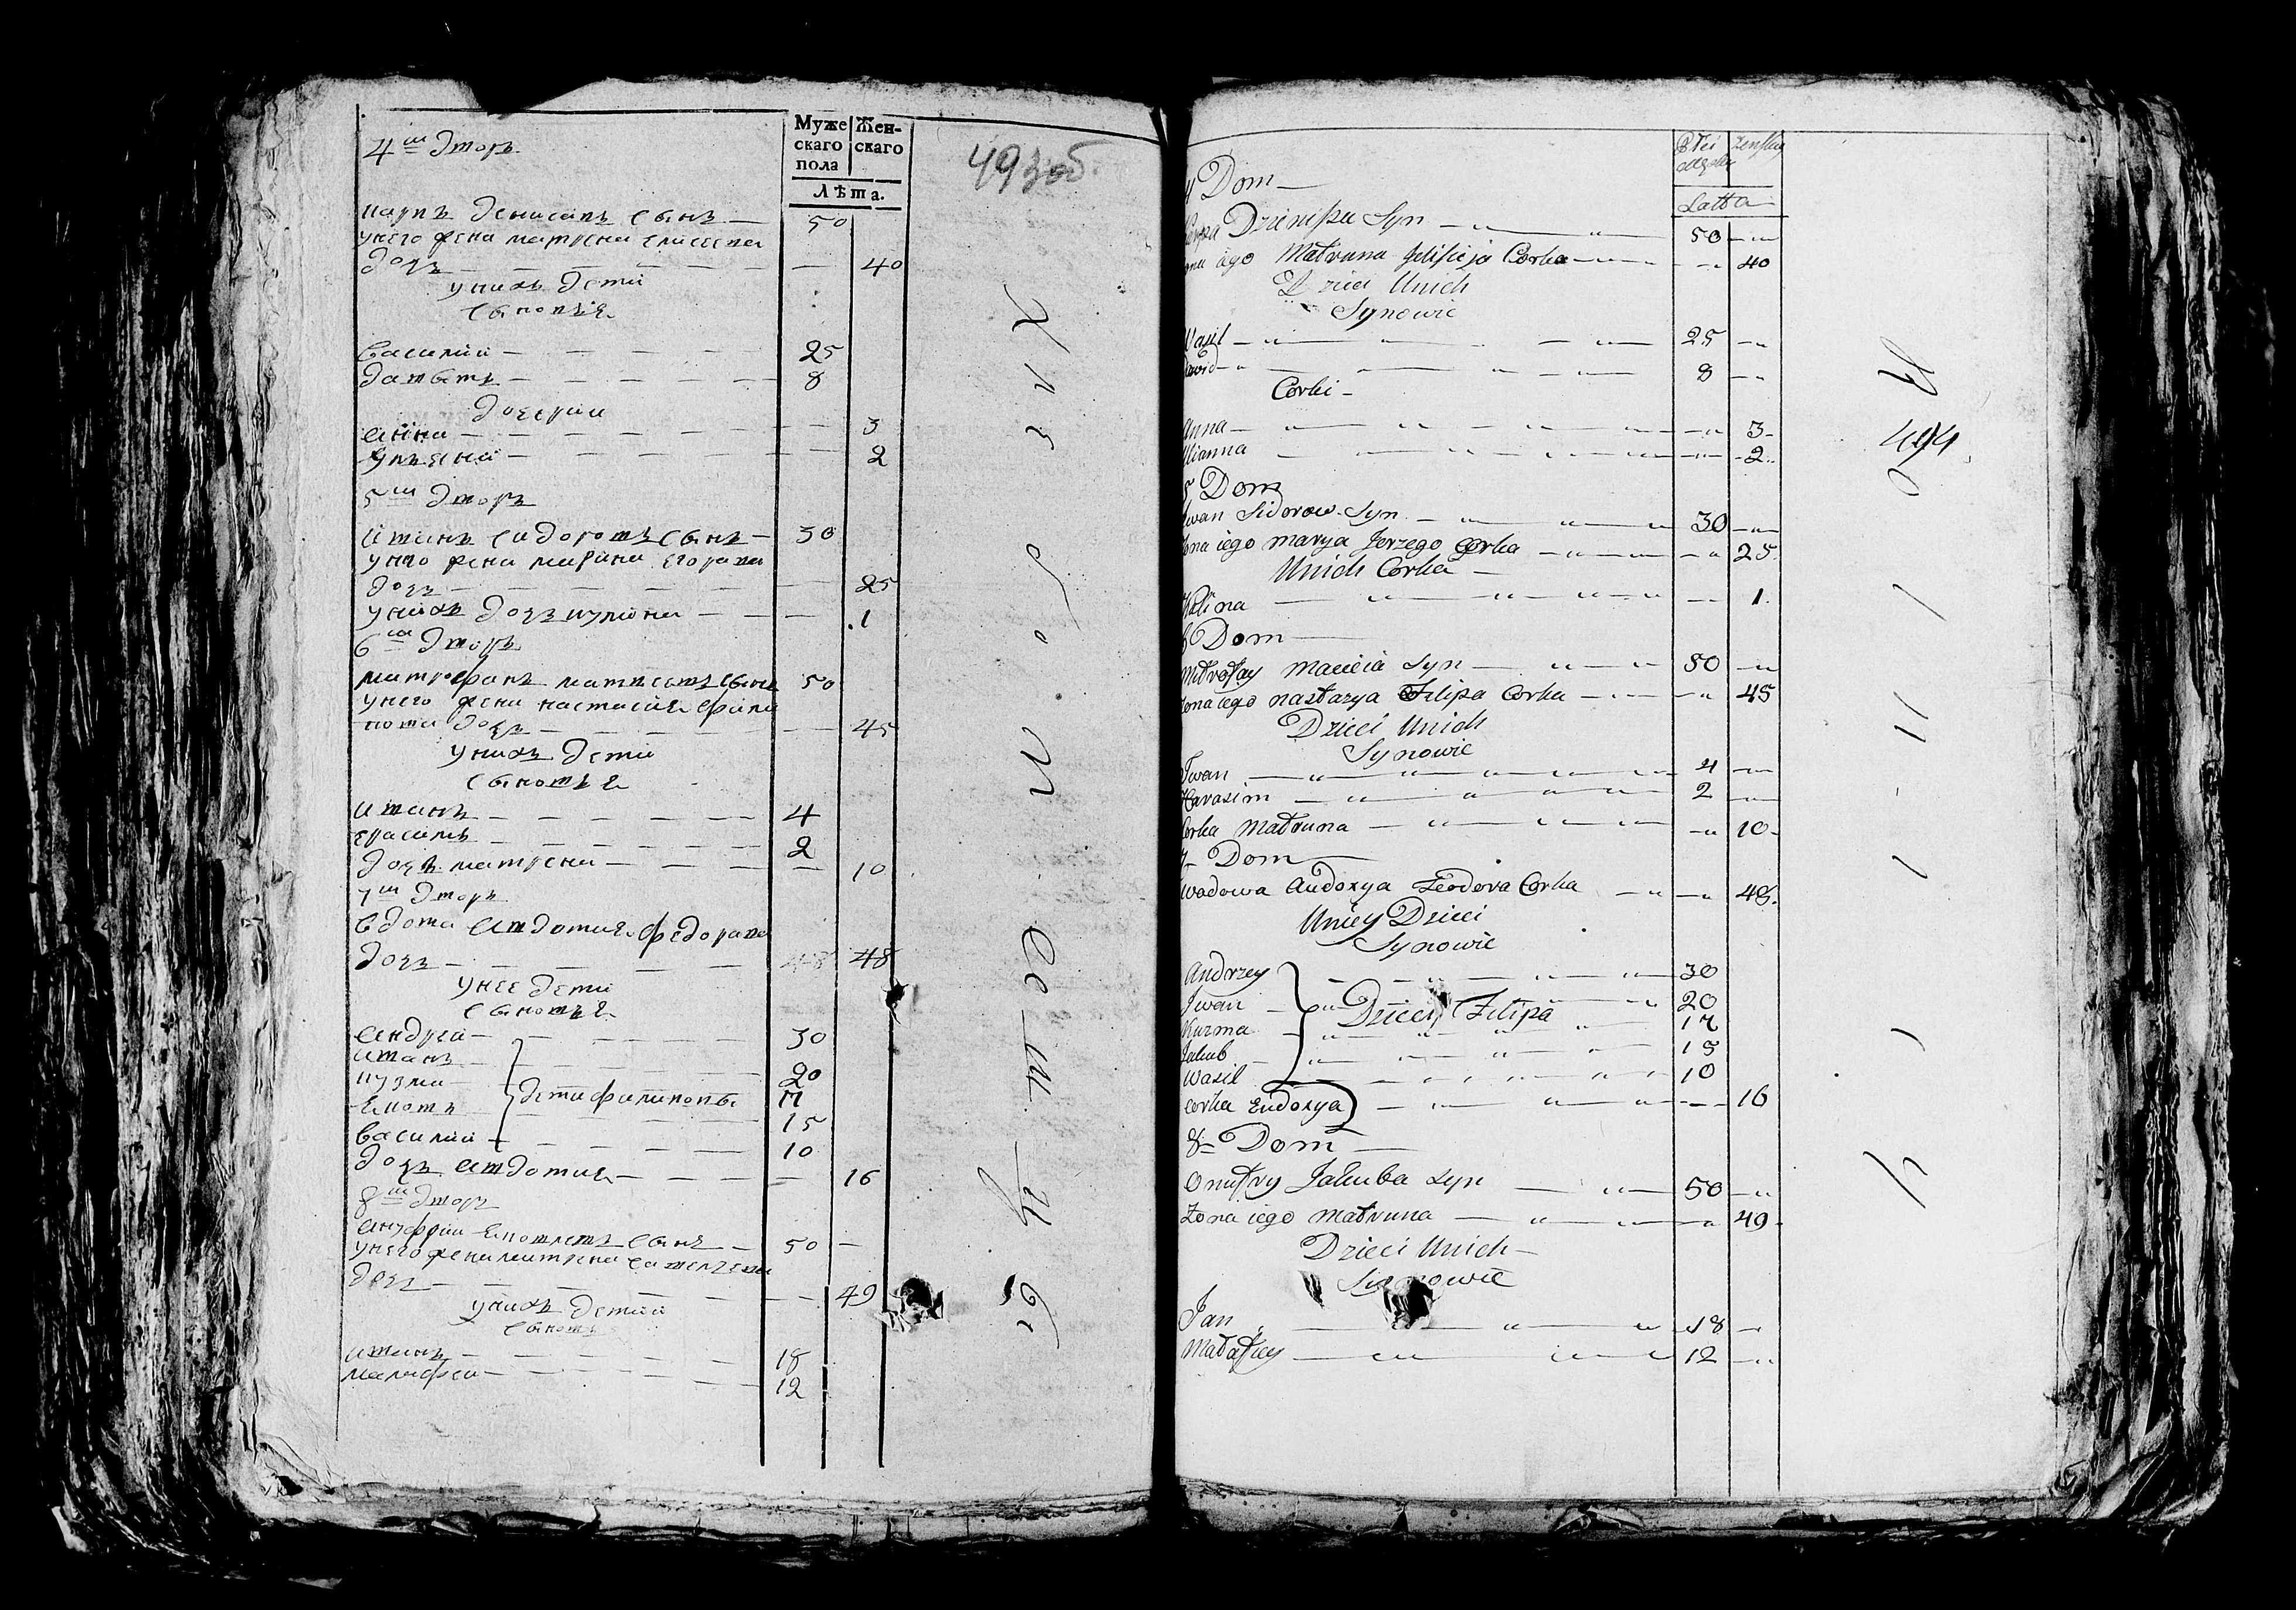 4й дворъ
Муже
скаго
пола
Жен-
скаго
Лѣта.
493об.
карпъ денисовъ сынъ 50
унего жена матрена елисеева
дочь 40
унихъ дети
сыновья
василий 25
давыдъ 8
дочерии
анна 3
ульяна 2
5й дворъ
иванъ сидоровъ сынъ 30
унго жена марина егорова
дочь 25
унихъ дочь кулина 1
6й дворъ
митрофанъ матвеевъ сынъ 50
унего жена настасия фили
пова дочь 45
унихъ дети
сыновья
иванъ 4
ерасимъ 2
дочь матрена 10
7й дворъ
вдова авдотия федорова
дочь 48 48
унее дети
сыновья
андреи 30
иванъ 20
кузма 17
дети филиповы
яковъ 15
василии 10
дочь авдотия 16
8й дворъ
ануфрии яковлевъ сынъ 50
унего жена матрена савельева
дочь 49
унихъ детии
сыновья
иванъ 18
малафеи 12
Płci żenskiey
Latta
4 Dom
Karpa Dzienisza Syn 50
żona iego Matruna Jelisieja Corka 40
Dzieci Unich
Synowie
Wasil 25
Dawid 8
Corki
Anna 3
Ulianna 2
5 Dom
Iwan Sidorow Syn 30
żona iego marya Jerzego Corka 25
Unich Corka
Kulina 1
6 Dom
Mitrofay Macieia Syn 50
żona iego nastazya Filipa Corka 45
Dzieci Unich
Synowie
Iwan 4
Harasim 2
Corka Matruna 10
7 Dom
Wdowa Audoxya Feodora Corka 48
Uniey Dzieci
Synowie
Andrzey 30
Iwan 20
Dzieci Filipa
Kuzma 17
Jakub 15
Wasil 10
Corka Eudoxya 16
8 Dom
Onufry Jakuba Syn 50
żona iego Matruna 49
Dzieci Unich
Synowie
Jan 18
Małafiey 12
494